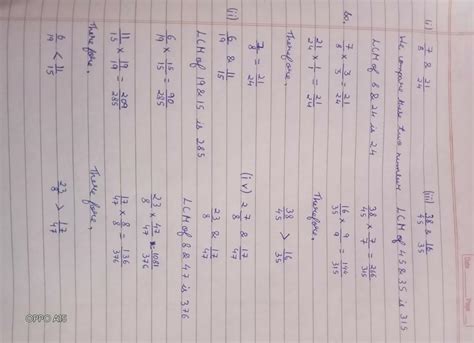 (i) 7/8 & 21/24
We compare these two numbers
LCM of 8 & 24 is 24
So,
7/8 × 3/3 = 21/24
21/24 × 1/1 = 21/24
Therefore,
7/8 = 21/24
(ii) 6/19 & 11/15
LCM of 19 & 15 is 285
6/19 × 15/15 = 90/285
11/15 × 19/19 = 209/285
Therefore,
6/19 < 11/15
(iii) 38/45 & 16/35
LCM of 45 & 35 is 315
38/45 × 7/7 = 266/315
16/35 × 9/9 = 144/315
Therefore,
38/45 > 16/35
(iv) 2 7/8 & 17/47
23/8 & 17/47
LCM of 8 & 47 is 376
23/8 × 47/47 = 1081/376
17/47 × 8/8 = 136/376
Therefore,
23/8 > 17/47
Date
Page
OPPO A15